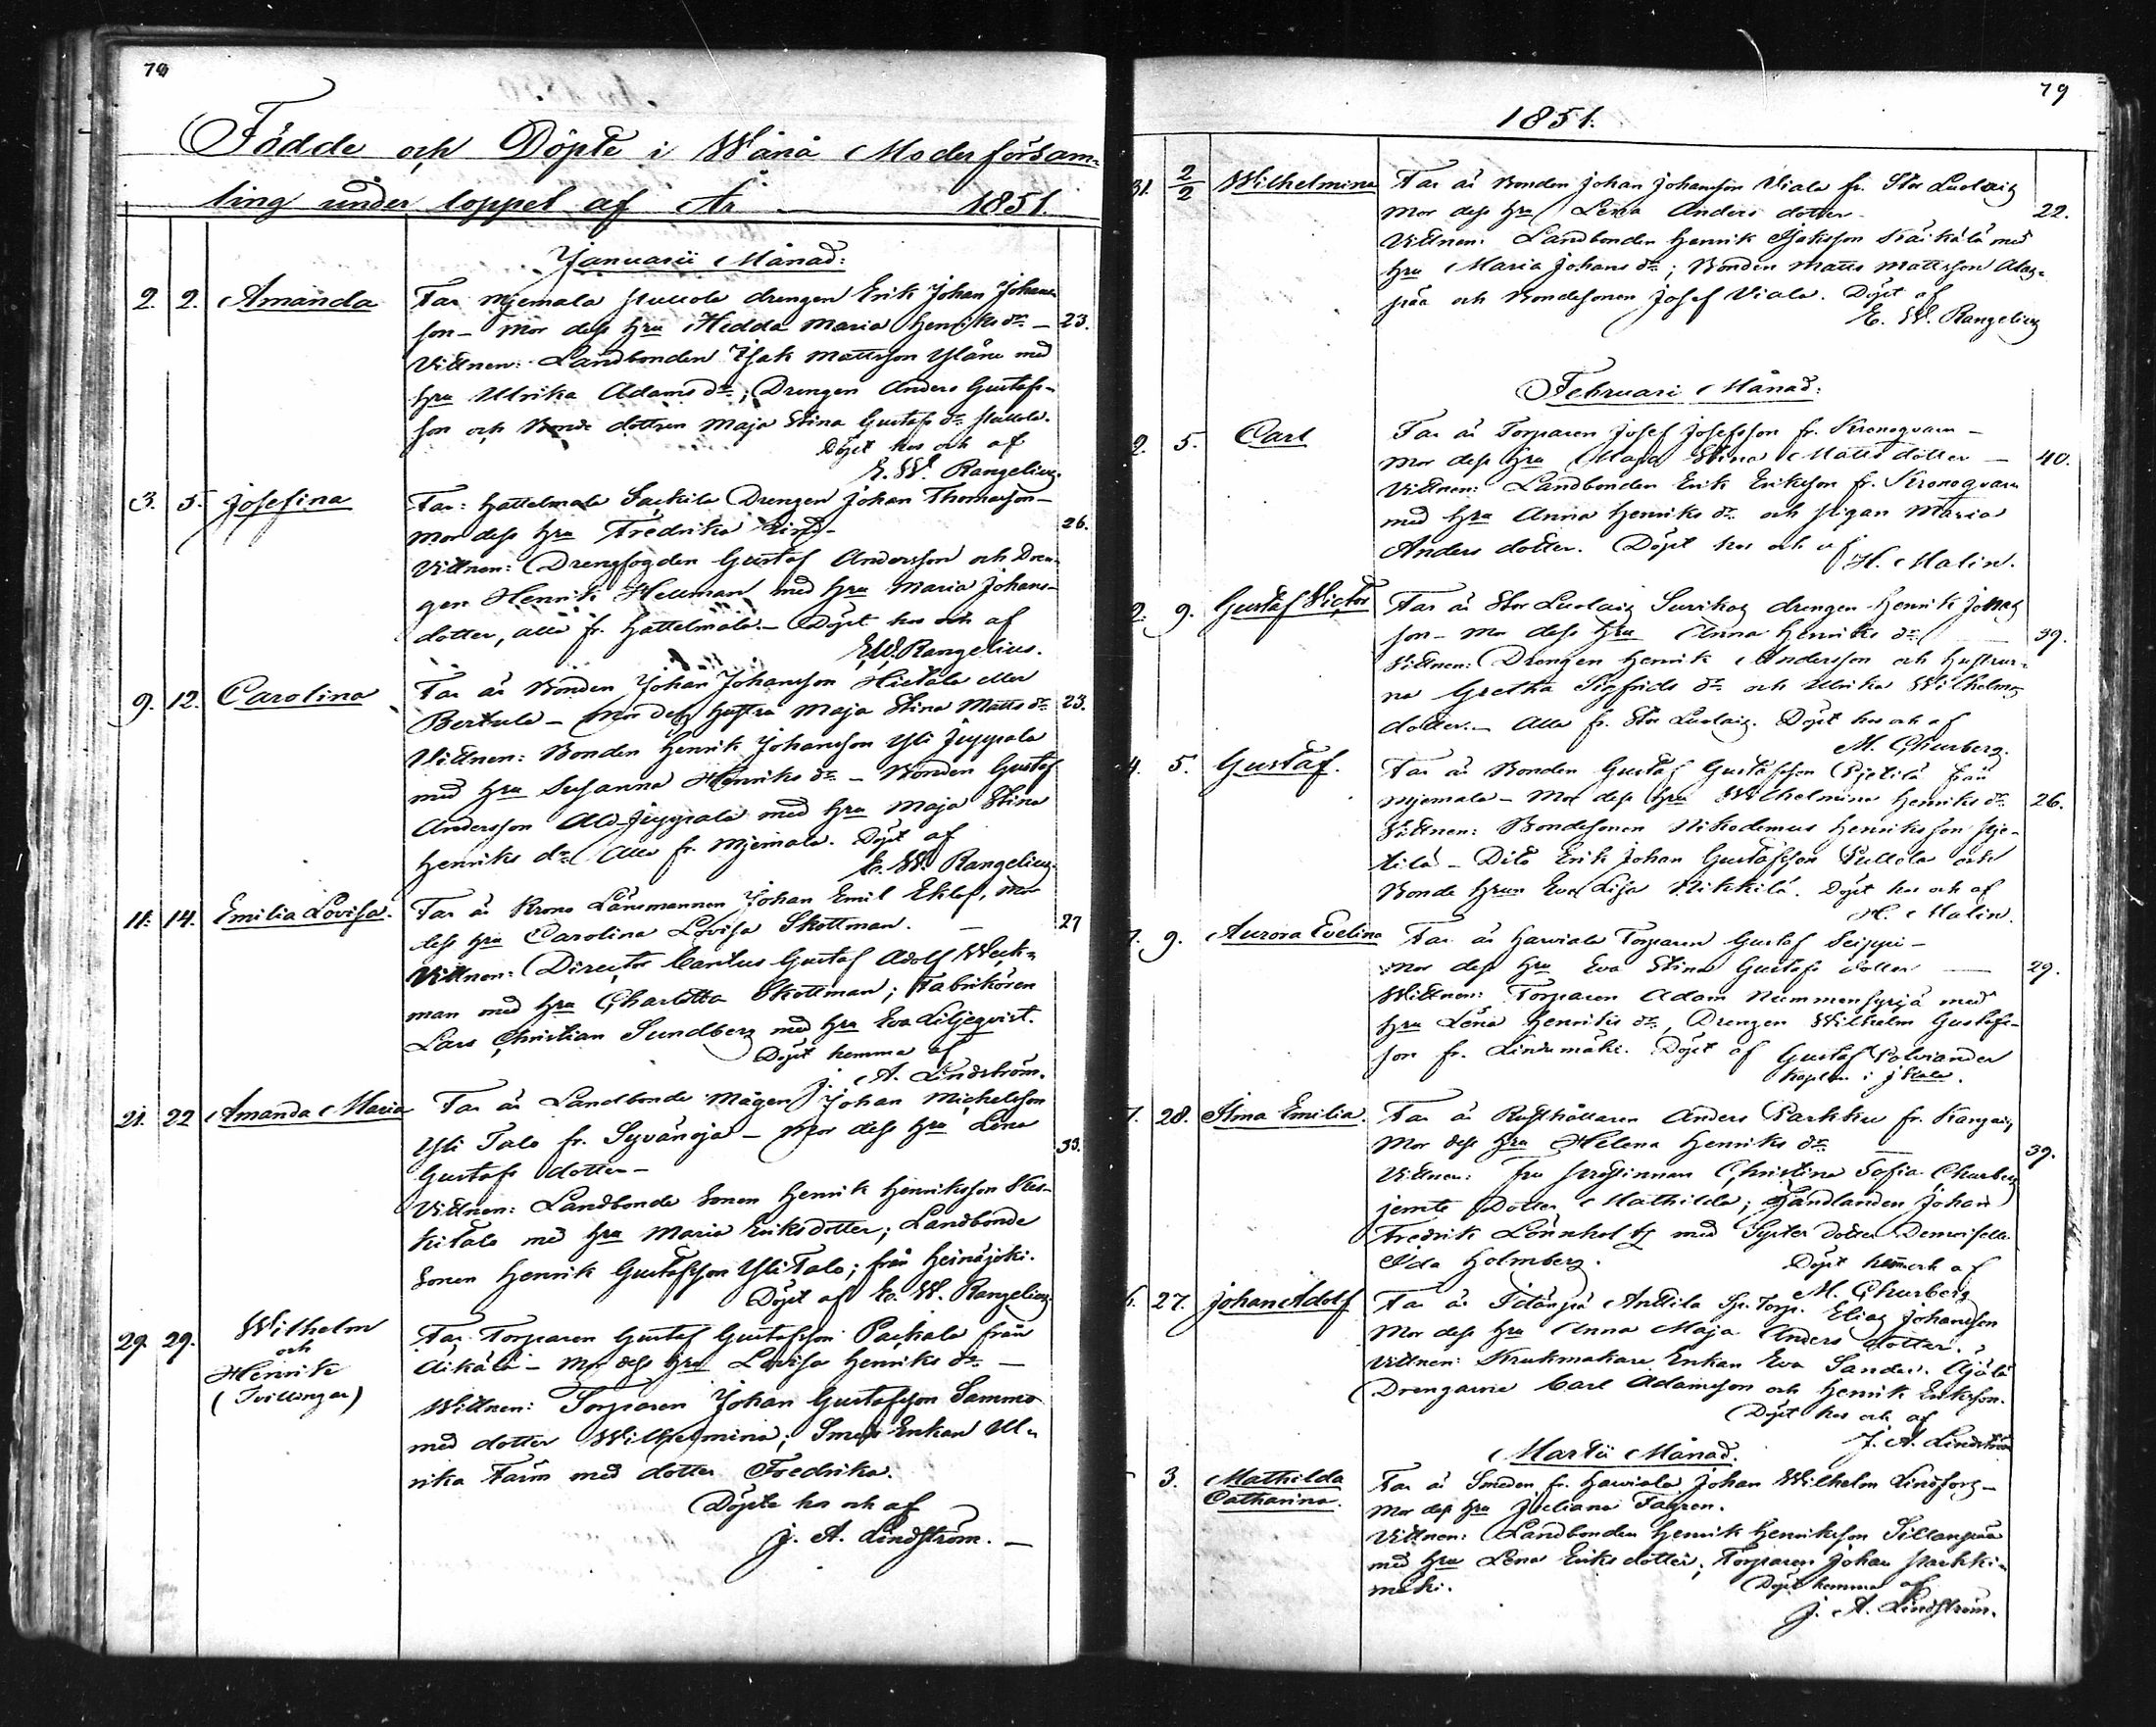 Födde och Döpte i Wånå Moderförsam-
ling under loppet af År 1851.
Januarii Månad:
2. 2. Amanda Far Mjemala drengen Erik Johan Johans-
son - Mor dess hru Hedda Maria Henriks dr - 23.
Vittnen: Landbonden Isak Mattsson Yläne med
hru Ulrika Adams dr; Drengen Anders Gustafs-
son och Bonde dottren Maja Stina Gustafs dr
Döpt hos och af
E. W. Rangelius.
3. 5. Josefina Far: Hattelmala Drengen Johan Thomasson -
Mor dess hru Fredrika 26.
Vittnen: Drengfogden Gustaf Andersson och Dren-
gen Henrik Hellman med hru Maria Johans-
dotter, alla fr. Hattelmala. - Döpt hos och af
E.W. Rangelius.
9. 12. Carolina Far är Bonden Johan Johansson Hietala eller
Bertula - Mor dess hustru Maja Stina Matts dr 23.
Vittnen: Bonden Henrik Johansson Yli Juppala
med hru Susanna Henriks dr - Bonden Gustaf
Andersson Ala-Juppala med hru Maja Stina
Henriks dr Alla fr. Mjemala. Döpt af
E. W. Rangelius.
11. 14. Emilia Lovisa. Far är Krono Länsmannen Johan Emil Eklöf, Mor
dess hru Carolina Lovisa Skottman. - 27
Vittnen: Director Cantus Gustaf Adolf Weck-
man med hru Charlotta Skottman; Fabrikören
Lars Christian Sundberg med hru Eva Liljeqvist.
Döpt hemma af
J. A. Lindström.
21. 22 Amanda Maria Far är Landbonde Mågen Johan Michelsson
Yli Talo fr. Syvänoja - Mor dess hru Lena 33.
Gustafs dotter -
Vittnen: Landbonde Sonen Henrik Henriksson Kes-
kitalo med hru Maria Eriksdotter; Landbonde
Sonen Henrik Gustafsson YliTalo; från Heinäjoki.
Döpt af E. W. Rangelius
29. 29. Wilhelm och Henrik (Tvillingar) Far Torparen Gustaf Gustafsson från
Äikälä - Mor dess hru Lovisa Henriks dr -
Wittnen: Torparen Johan Gustafsson Sammo
med dotter Wilhelmina; Smeds Enkan Ul-
rika Farm med dotter Fredrika.
Döpte hos och af
J. A. Lindström. -
79
1851.
31. 2/2 Wilhelmina Far är Bonden Johan Johansson Uiala fr. Stor Luolais
Mor dess hru Lena Anders dotter 22.
Vittnen: Landbonden Henrik Isaksson med
hru Maria Johans dr; Bonden Matts Mattsson Alas-
pää och Bondesonen Josef Viala. Döpt af
E. W. Rangelius
Februari Månad:
2. 5. Carl Far är Torparen Josef Josefsson fr. Kronoqvarn -
Mor dess hru Maja Stina Matts dotter - 40.
Vittnen: Landbonden Erik Eriksson fr. Kronoqvarn
med hru Anna Henriks dr och pigan Maria
Anders dotter. Döpt hos och af
H. Malin.
2. 9. Gustaf Victor Far är Stor Luolais Surikas drengen Henrik Jonas
son - Mor dess hru Anna Henriks dr 39.
Vittnen: Drengen Henrik Andersson och hustrur-
na Gretha Sigfrids dr och Ulrika Wilhelms
dotter. - Alla fr. Stor Luolais. Döpt hos och af
M. Churberg.
4. 5. Gustaf. Far är Bonden Gustaf Gustafsson Pjetilä från
Mjemala - Mor dess hru Wilhelmina Henriks dr 26.
Vittnen: Bondesonen Nikodemus Henriksson Pje-
tilä - Dito Erik Johan Gustafsson och
Bonde hrun Eva Lisa Nikkilä. Döpt hos och af
H. Malin.
7. 9. Aurora Evelina Far är Harviala Torparen Gustaf Seippi -
Mor dess hru Eva Stina Gustafs dotter - 29.
Wittnen: Torparen Adam Nummensyrjä med
hru Lena Henriks dr, Drengen Wilhelm Gustafs-
son fr. Lindumäki. Döpt af Gustaf Polviander
Kaplan i
7. 28. Stina Emilia. Far är Rusthållaren Anders Parkku fr. Kangais
Mor dess hru Helena Henriks dr - 39.
Vittnen: Fru Prostinnan Christina Sofia Churberg
jemte Dotter Mathilda; Handlanden Johan
Fredrik Lönnholtz med Syster dotter Demoiselle
Ida Holmberg. Döpt hemma och af
M. Churberg
6. 27. Johan Adolf Far är Idänpää Anttila Sp. Torp. Elias Johansson
Mor dess hru Anna Maja Anders dotter.
Vittnen: Krukmakare Enkan Eva Sander. Äjälä
Drengarne Carl Adamsson och Henrik Eriksson.
Döpt hos och af
J. A. Lindström
Martii Månad.
3. Mathilda Catharina. Far är Smeden fr. Harviala Johan Wilhelm Lindfors -
Mor dess hru Juliana Fagren.
Vittnen: Landbonden Henrik Henriksson Sillanpää
med hru Lena Eriks dotter; Torparen Johan Parkki-
mäki. Döpt hemma af
J. A. Lindström.